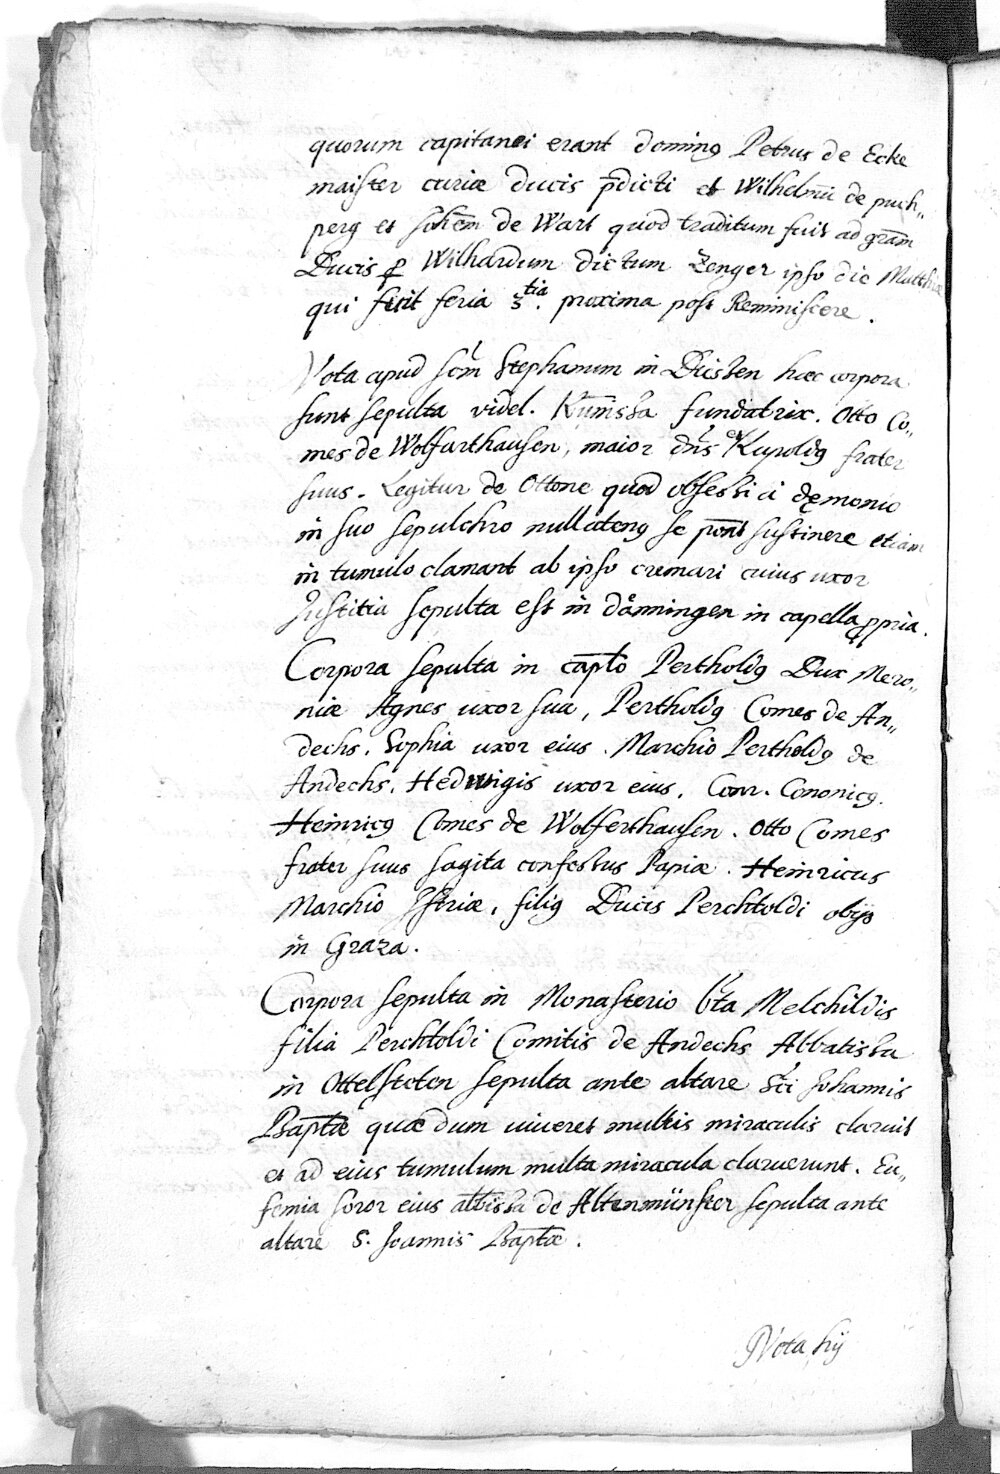 quorum capitanei erant dominꝰ Petrus de Ecke
maister curiæ ducis p̄dicti et Wilhelmū de puch„
perg et de Wart quod traditum fuit ad gr̄am
Ducis ꝑ Wilhardum dictum Zenger ipso die Matthiæ
qui fuit feria 3.tia proxima post Reminiscere.
Nota apud sc̄m Stephanum in Diessen hæc corpora
sunt sepulta videl. Kunissa fundatrix. Otto Co„
mes de Wolfarthausen, maior dn̄s frater
suus. Legitur de Ottone quod obsessi a dęmonio
in suo sepulchro nullatenꝰ se pos̄nt sustinere etiam
in tumulo clamant ab ipso cremari cuius uxor
Justitia sepulta est in Dånningen in capella ꝓpria.
Corpora sepulta in cap̄lo Pertholdꝰ Dux Mero„
niæ Agnes uxor sua, Pertholdꝰ Comes de An„
dechs. Sophia uxor eius. Marchio Pertholdꝰ de
Andechs. Hedwigis uxor eius. Conr. Cononicꝰ.
Heinricꝰ Comes de Wolferthausen. Otto Comes
frater suus sagita confossus Papiæ. Heinricus
Marchio Istriæ, filiꝰ Ducis Perchtoldi obijt
in Graza.
Corpora sepulta in Monasterio b̄ta Melchildis
filia Perchtoldi Comitis de Andechs Abbatissa
in Ottelsteten sepulta ante altare Sc̄i Johannis
Bapt̄æ quæ dum uiueret multis miraculis claruit
et ad eius tumulum multa miracula claruerunt. Eu„
femia soror eius abb̄issa de Altenmünster sepulta ante
altare S. Joannis Bapt̄æ.
Nota hij